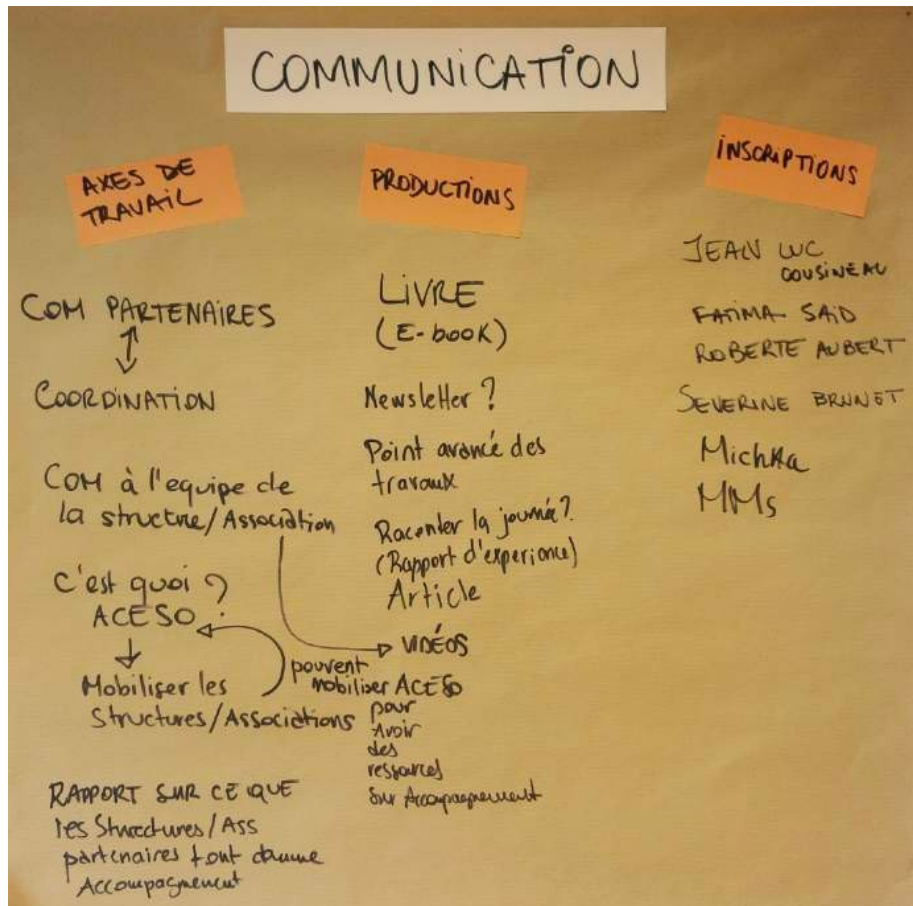 COMMUNICATION
AXES DE
TRAVAIL
COM PARTENAIRES
COORDINATION
COM à l'equipe de
la structure/Association
C'est quoi ?
ACESO
Mobiliser les
Structures/Associations
RAPPORT SUR CE QUE
les Structures/Ass
partenaires font comme
Accompagnement
PRODUCTIONS
LIVRE
(E-book)
Newsletter ?
Point avancé des
travaux
Raconter la journée ?
(Rapport d'experience)
Article
VIDÉOS
pouvent
mobiliser ACESO
pour
Avoir
des
ressources
sur Accompagnement
INSCRIPTIONS
JEAN LUC
COUSINEAU
FATIMA SAID
ROBERTE AUBERT
SEVERINE BRUNET
Michka
MMs